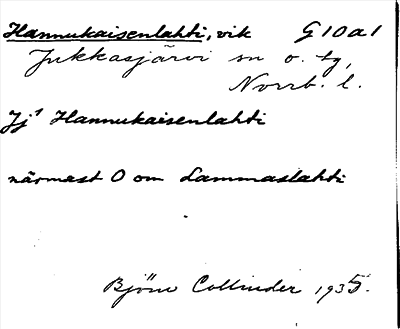 Hannukaisenlahti, vik G10a1
Jukkasjärvi sn o. tg,
Norrb. l.
Jj¹ Hannukaisenlahti
närmast O om Lammaslahti
Björn Collinder 1935.